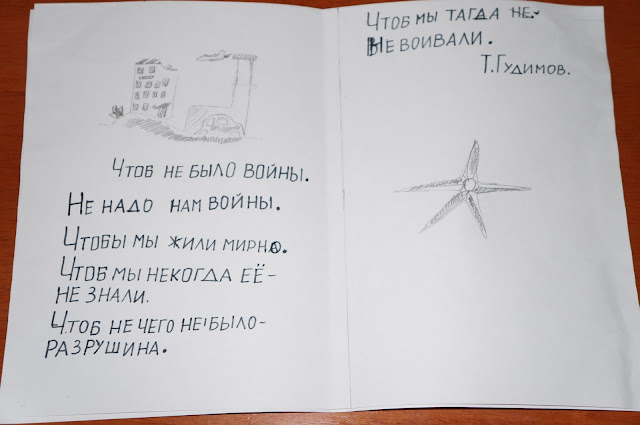 Чтоб не было войны.
Не надо нам войны.
Чтобы мы жили мирно.
Чтоб мы некогда её-
не знали.
Чтоб не чего не было-
разрушина.
Чтоб мы тагда не-
не воивали.
Т.Гудимов.